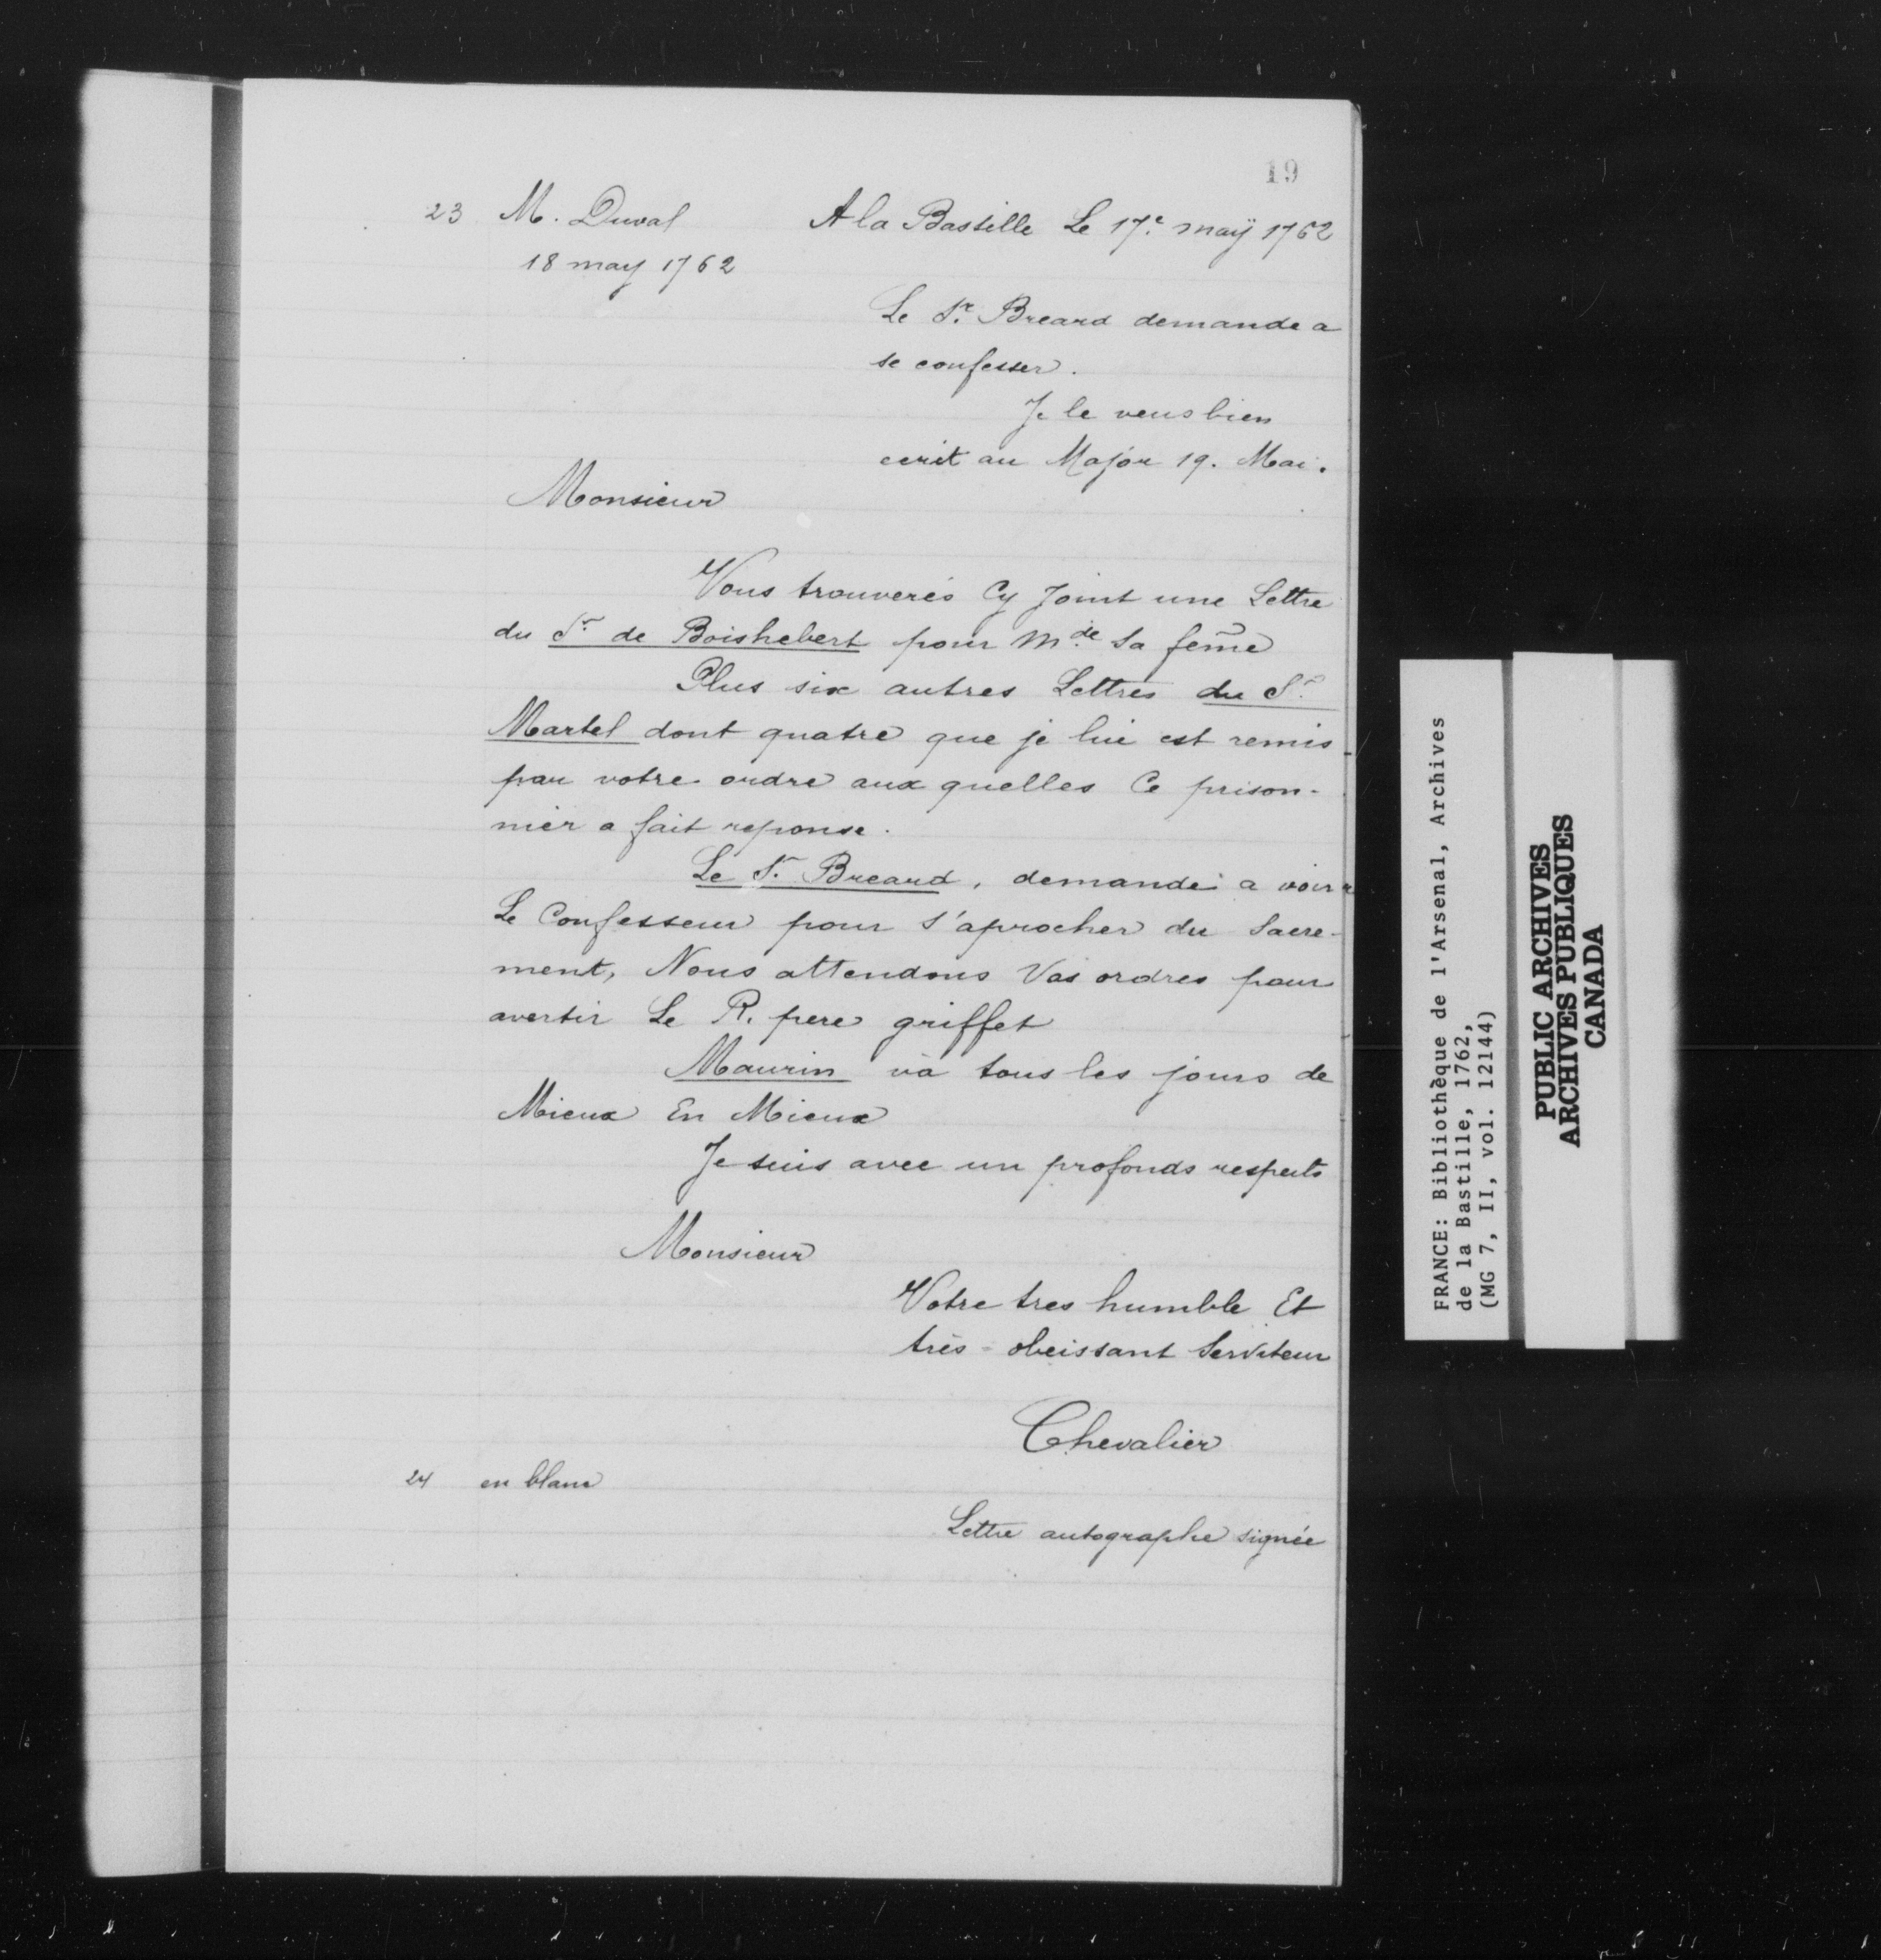 19
23 M. Duval A la Bastille Le 17.e maÿ 1762
18 may 1762
Le Sr. Breard demande a
se confesser.
Je le veus bien
ecrit au Major 19. Mai.
Monsieur
Vous trouverés Cy Joint une Lettre
du Sr de Boishebert pour M.de Sa fem̃e
Plus six autres Lettres du Sr.
Martel dont quatre que je lui est remis
par votre ordre aux quelles Ce prison-
nier a fait reponse.
Le Sr. Breard, demande a voir
Le Confesseur pour S'aprocher du Sacre-
ment, Nous attendons Vos ordres pour
avertir Le R. pere griffet
Maurin và tous les jours de
Mieux En Mieux
Je suis avec un profonds respects
Monsieur
Votre tres humble Et
très-obeissant Serviteur
Chevalier
24 en blanc
Lettre autographe signée
FRANCE: Bibliothèque de l'Arsenal, Archives
de la Bastille, 1762,
(MG 7, II, vol. 12144)
PUBLIC ARCHIVES
ARCHIVES PUBLIQUES
CANADA